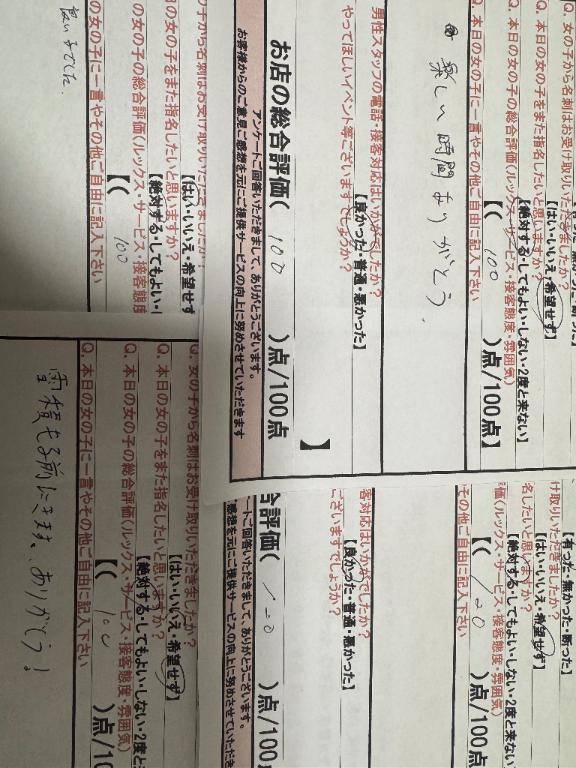 Q. 女の子から名刺はお受け取りいただきましたか?
【はい・いいえ・希望せず】
Q. 本日の女の子をまた指名したいと思いますか?
【絶対する・してもよい・しない・2度と来ない】
Q. 本日の女の子の総合評価(ルックス・サービス・接客態度・雰囲気)
【( 100 )点/100点】
Q. 本日の女の子に一言やその他ご自由に記入下さい
楽しい時間ありがとう
男性スタッフの電話・接客対応はいかがでしたか?
【良かった・普通・悪かった】
やってほしいイベント等ございますでしょうか?
】
お店の総合評価( 100 )点/100点
アンケートご回答いただきまして、ありがとうございます。
お客様からのご意見ご感想を元にご提供サービスの向上に努めさせていただきます
の子から名刺はお受け取りいただきましたか?
【はい・いいえ・希望せず
の女の子をまた指名したいと思いますか?
【絶対する・してもよい・し
の女の子の総合評価(ルックス・サービス・接客態度
【( 100
の女の子に一言やその他ご自由に記入下さい
良い子でした
【有った・無かった・断った】
け取りいただきましたか?
【はい・いいえ・希望せず】
名したいと思いますか?
【絶対する・してもよい・しない・2度と来ない】
価(ルックス・サービス・接客態度・雰囲気)
【( 100 )点/100点】
その他ご自由に記入下さい
客対応はいかがでしたか?
【良かった・普通・悪かった】
ございますでしょうか?
合評価( 100 )点/100点
ートご回答いただきまして、ありがとうございます。
感想を元にご提供サービスの向上に努めさせていただき
Q. 女の子から名刺はお受け取りいただきましたか?
【はい・いいえ・希望せず】
Q. 本日の女の子をまた指名したいと思いますか?
【絶対する・してもよい・しない・2度と来
Q. 本日の女の子の総合評価(ルックス・サービス・接客態度・雰囲気)
【( 100 )点/10
Q. 本日の女の子に一言やその他ご自由に記入下さい
雪積もる前にきます、ありがとう!